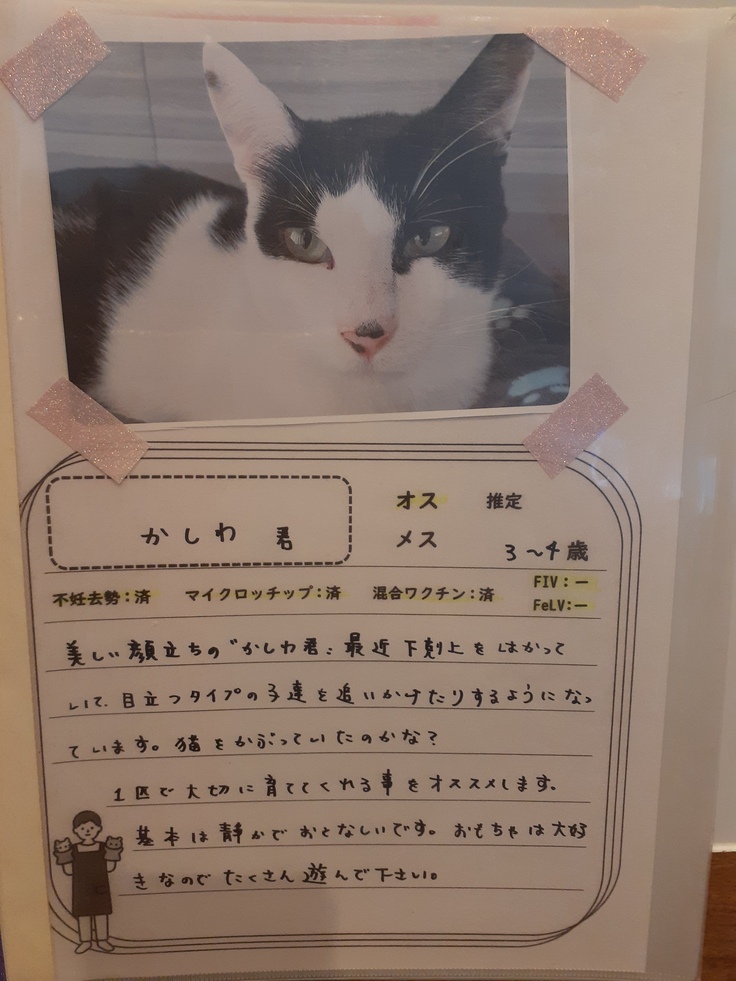 かしわ 君
オス 推定
メス 3〜4歳
不妊去勢：済 マイクロッチップ：済 混合ワクチン：済 FIV：ー
FeLV：ー
美しい顔立ちの"かしわ君"最近下剋上をはかって
いて、目立つタイプの子達を追いかけたりするようになっ
ています。猫をかぶっていたのかな？
1匹で大切に育ててくれる事をオススメします。
基本は静かでおとなしいです。おもちゃは大好
きなのでたくさん遊んで下さい。